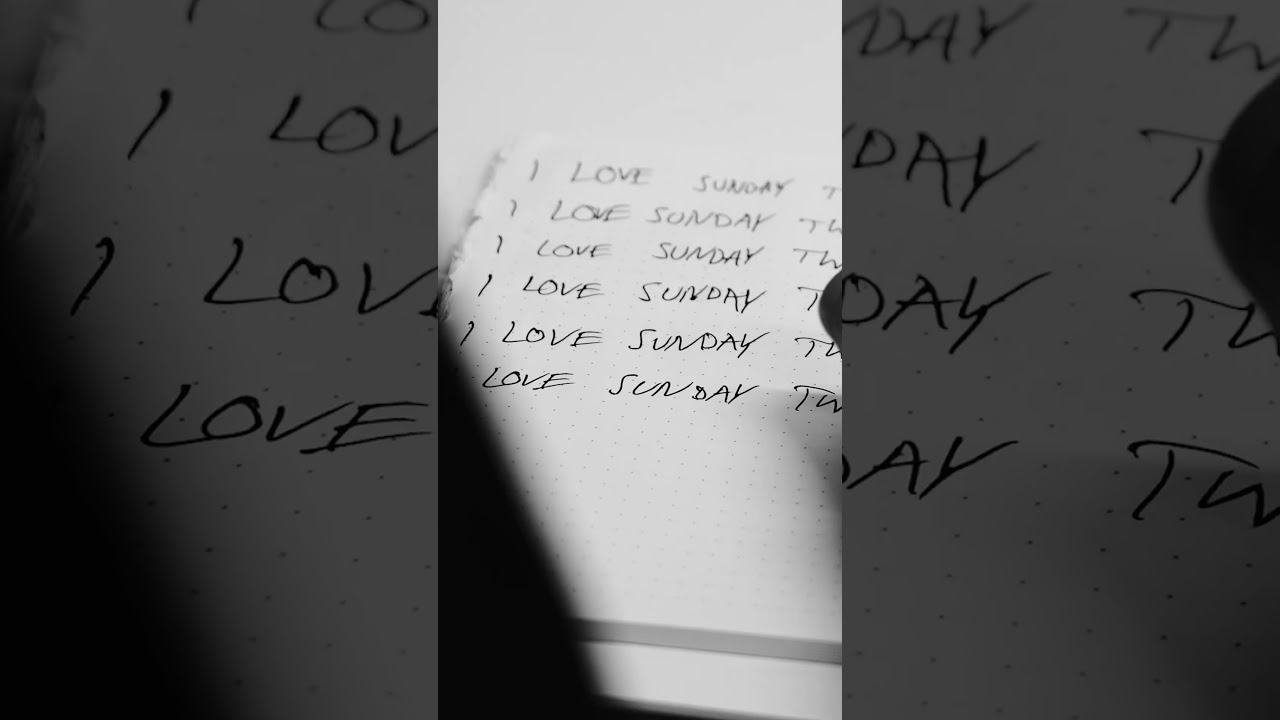 I LOVE SUNDAY T
I LOVE SUNDAY TW
I LOVE SUNDAY TW
I LOVE SUNDAY T
I LOVE SUNDAY TW
LOVE SUNDAY TW